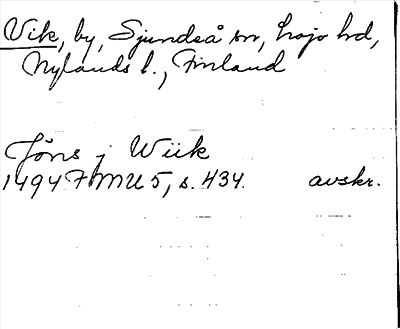 Vik, by, Sjundeå sn, Lojo hd,
Nylands l., Finland
Jöns j Wiik
1494 FMU 5, s. 434. avskr.